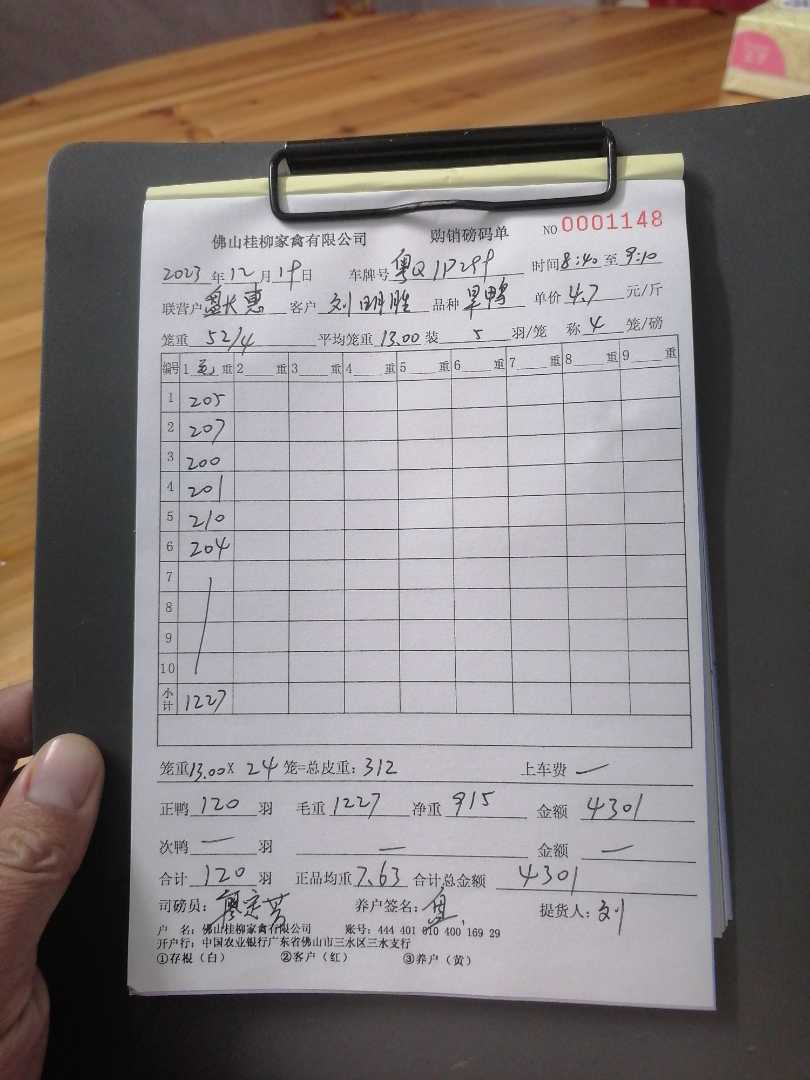 佛山桂柳家禽有限公司 购销磅码单 NO 0001148
2023年12月19日 车牌号粤Q1P299 时间8:40至9:10
联营户盘长惠 客户 刘明胜 品种 旱鸭 单价 4.7 元/斤
笼重 52/4 平均笼重 13.00 装 5 羽/笼 称 4 笼/磅
编号 1 毛 重 2 重 3 重 4 重 5 重 6 重 7 重 8 重 9 重
1 205
2 207
3 200
4 201
5 210
6 204
7
8
9
10
小计 1227
笼重13.00X 24 笼=总皮重:312 上车费 一
正鸭 120 羽 毛重 1227 净重 915 金额 4301
次鸭 一 羽 一 金额 一
合计 120 羽 正品均重 7.63 合计总金额 4301
司磅员: 养户签名:盘 提货人:刘
户 名:佛山桂柳家禽有限公司 账号:444 401 010 400 169 29
开户行:中国农业银行广东省佛山市三水区三水支行
①存根(白) ②客户(红) ③养户(黄)